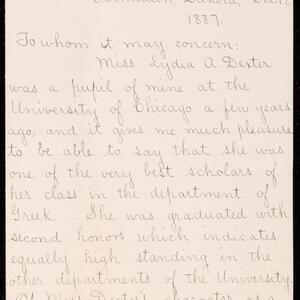 Vermillion, Dakota, Dec.
1887.
To whom it may concern:
Miss Lydia A. Dexter
was a pupil of mine at the
University of Chicago a few years
ago, and it gives me much pleasure
to be able to say that she was
one of the very best scholars of
her class in the department of
Greek. She was graduated with
second honors which indicates
equally high standing in the
other departments of the University.
Of Miss Dexter's character as a